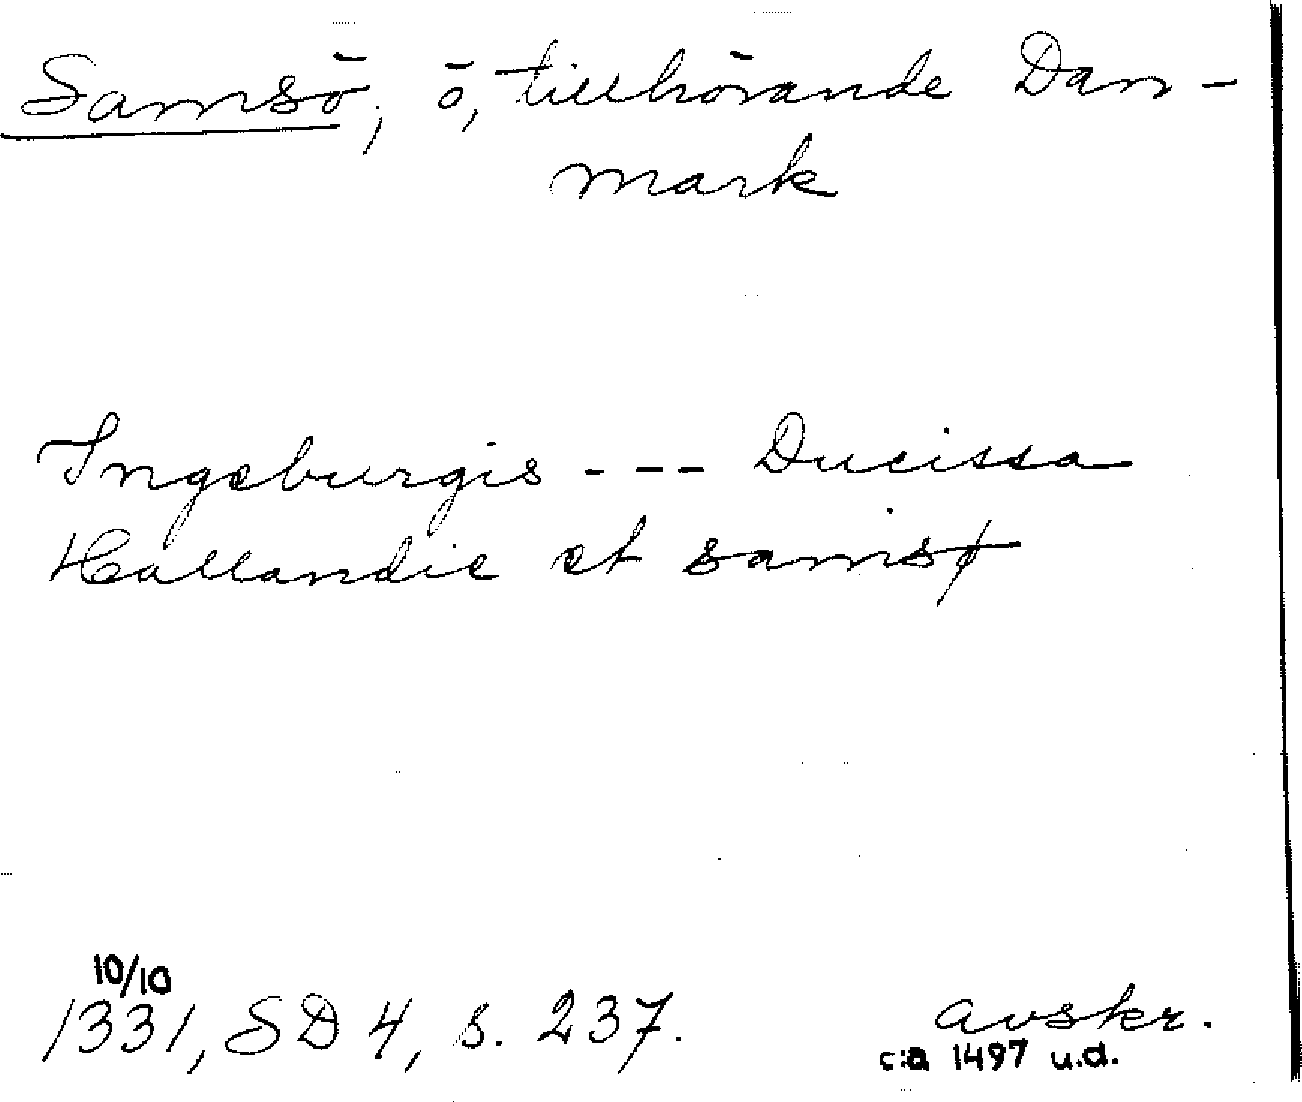 Samsö, ö, tillhörande Dan-
mark
Ingeburgis --- Ducissa
Hallandie et samsø
10/10
1331, SD 4, s. 237.
avskr.
c:a 1497 u.d.